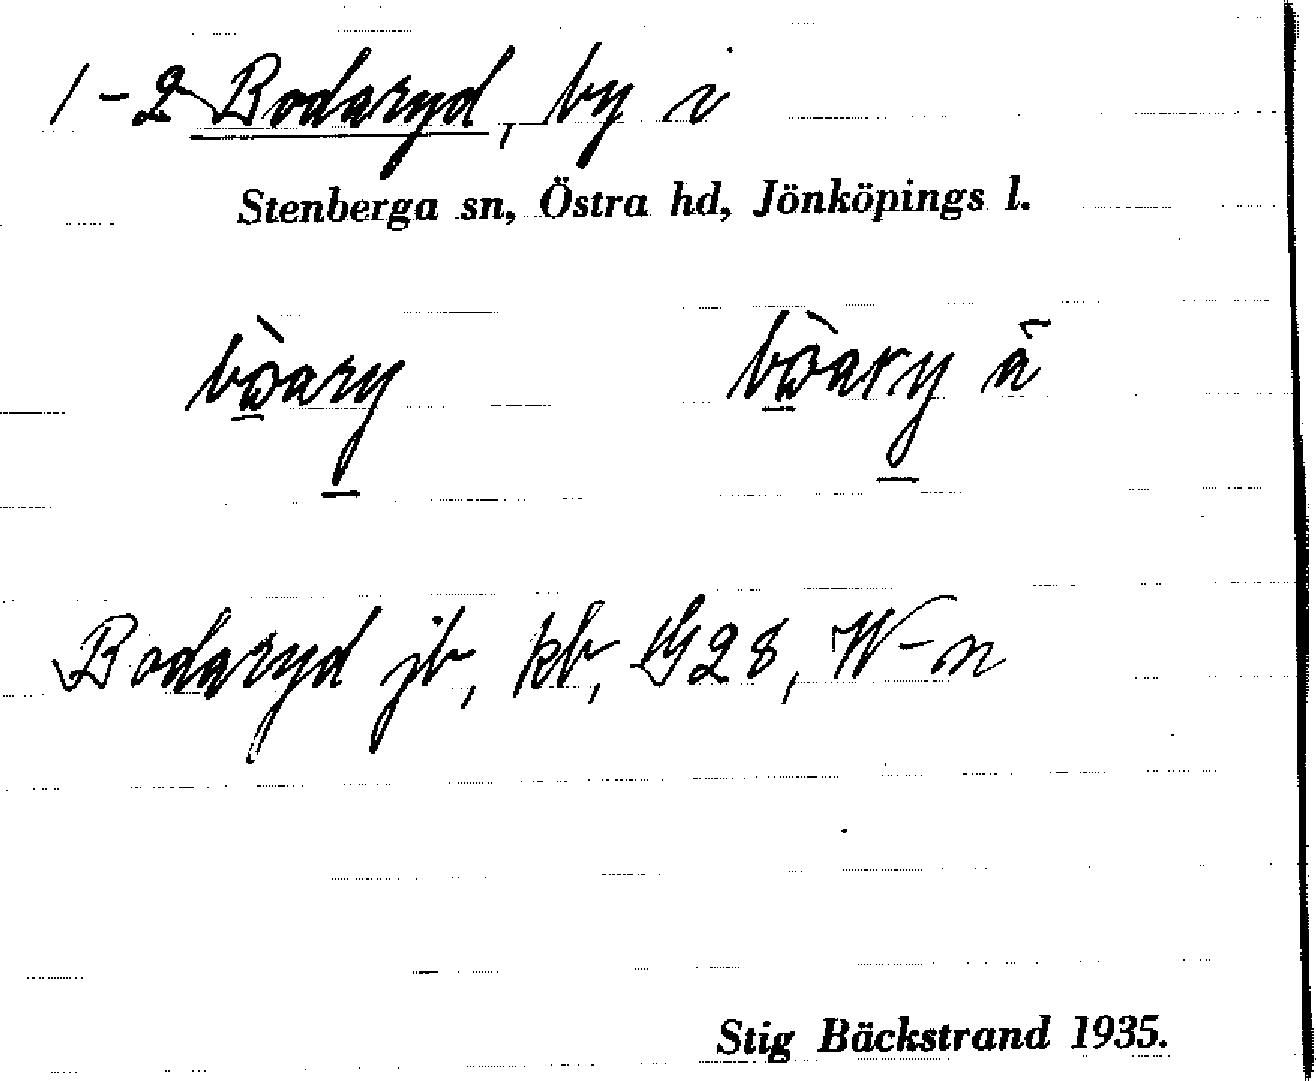 1-2 Bodaryd, by i
Stenberga sn, Östra hd, Jönköpings l.
Bodaryd jb, kb, G28, W-m
Stig Bäckstrand 1935.